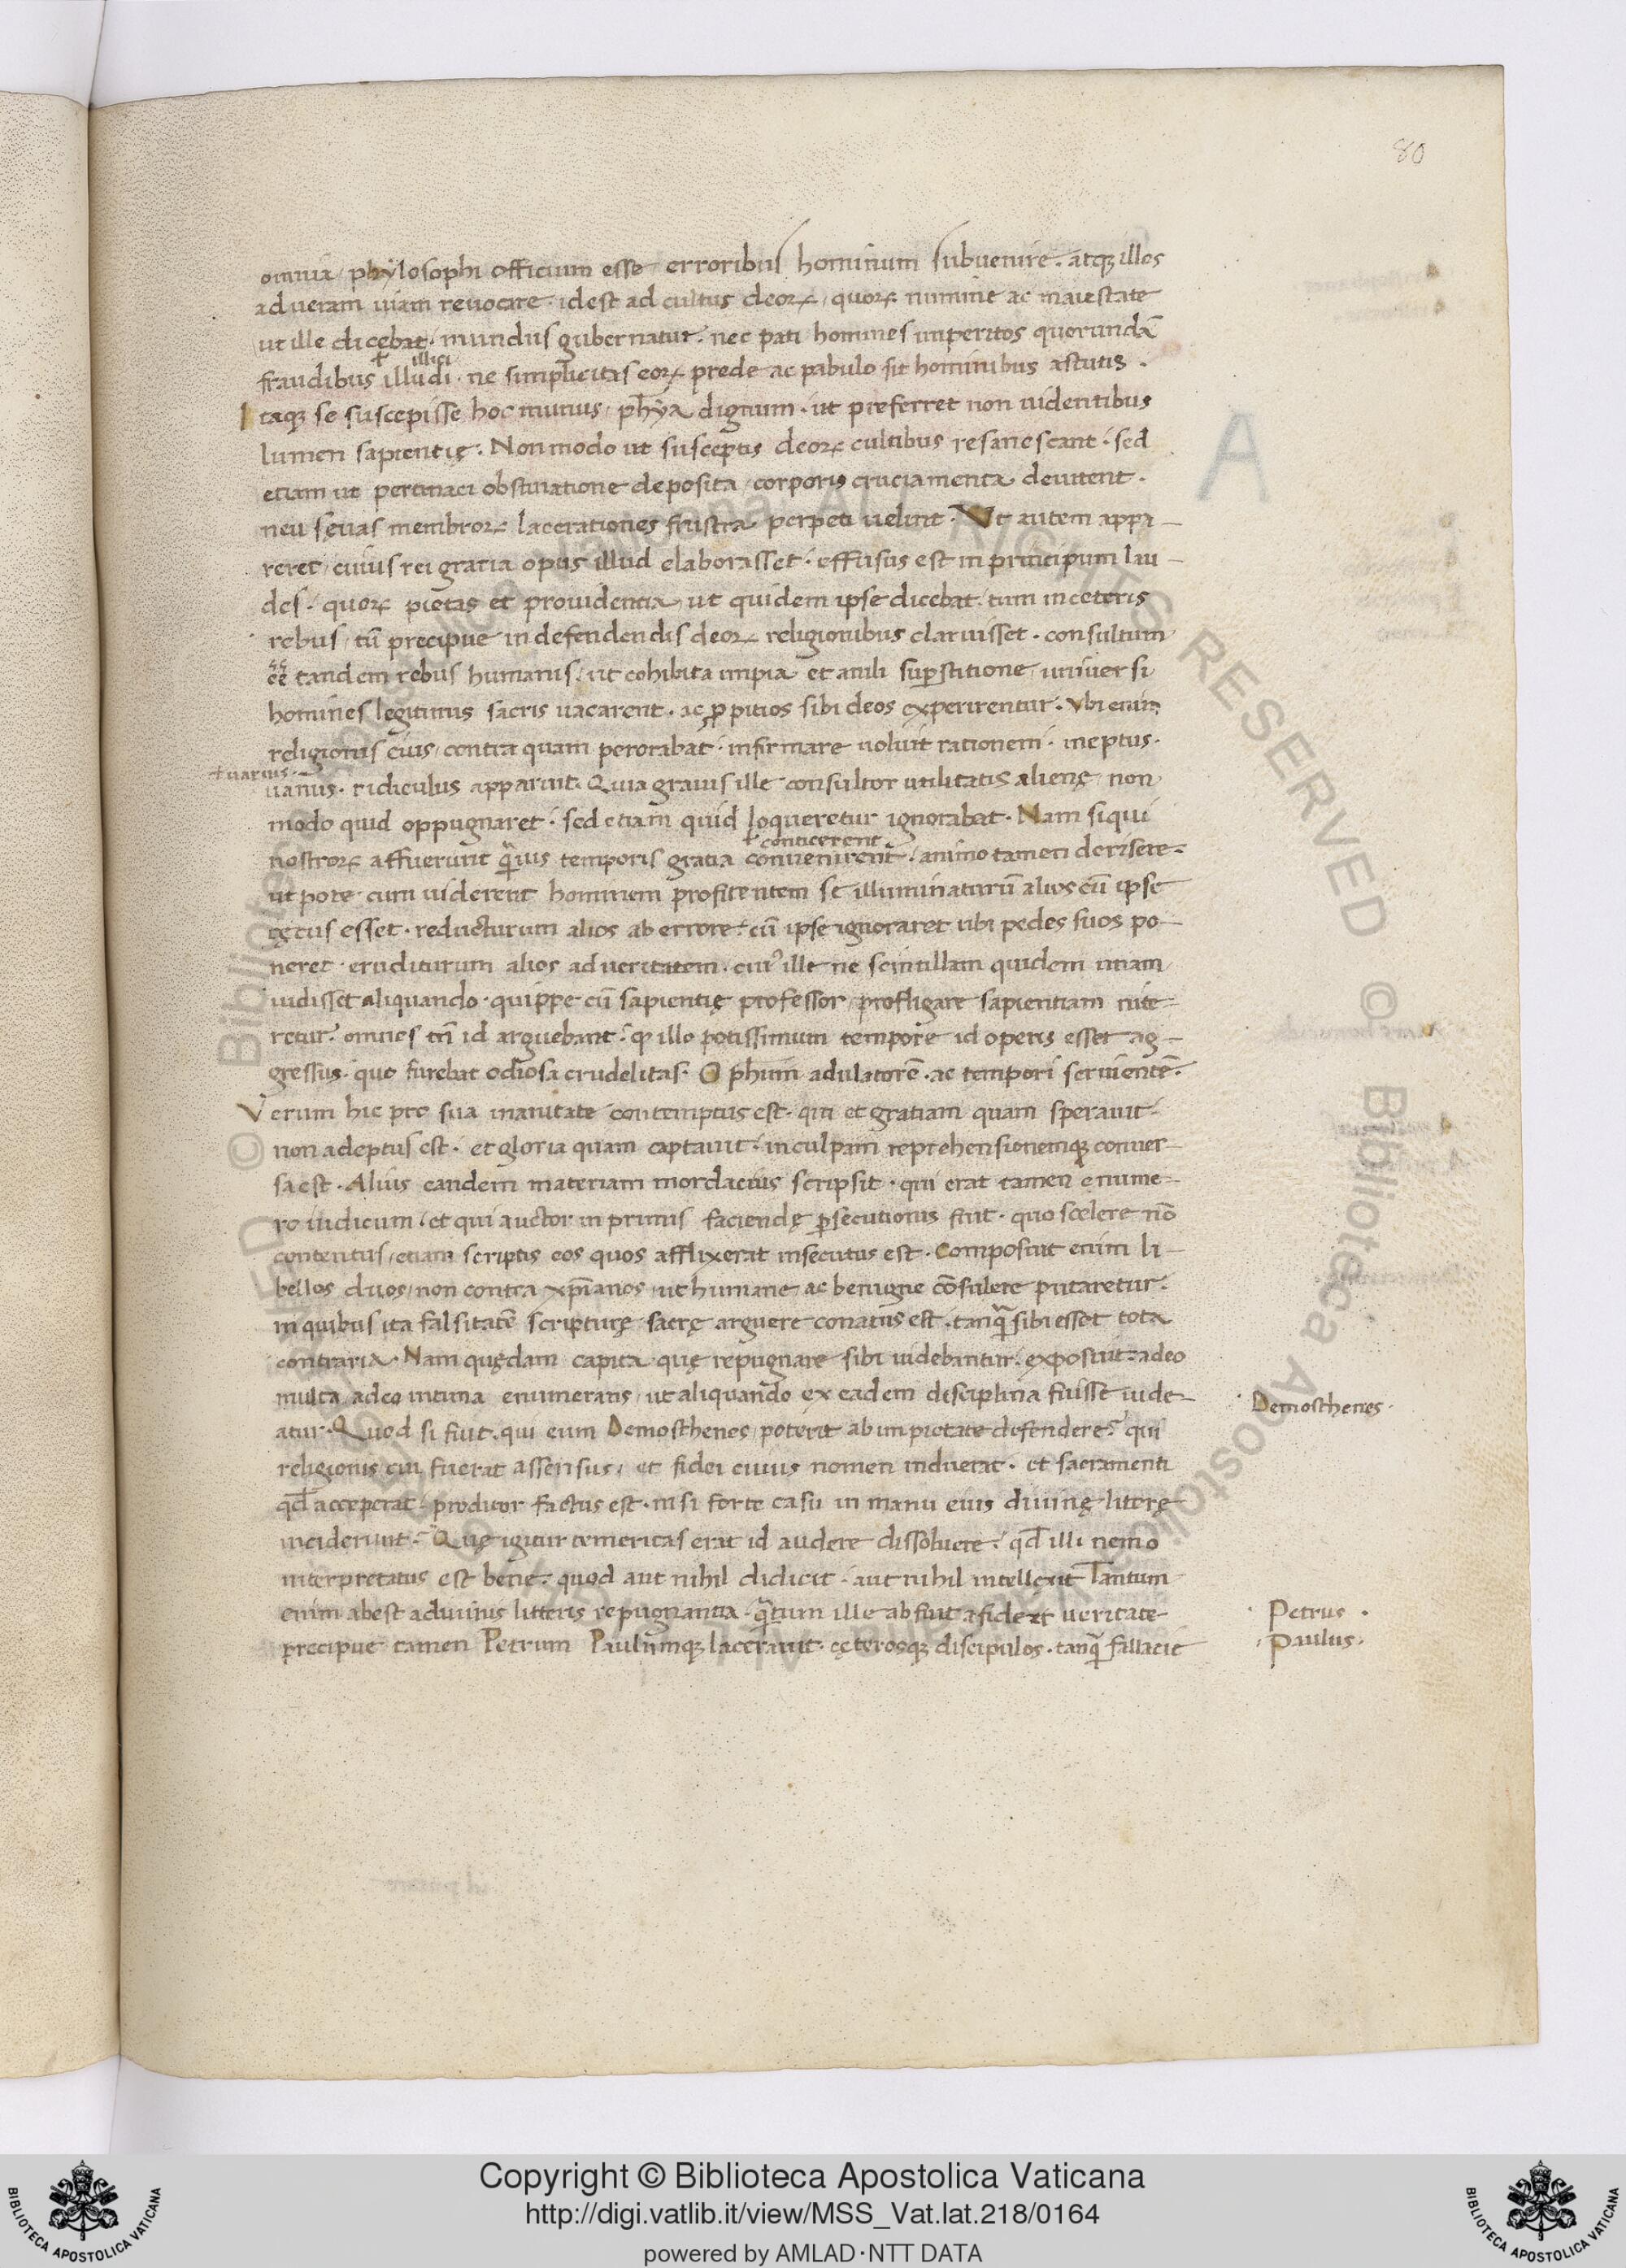 80
omnia phylosophi officium esse erroribus hominum subuenire. atqꝫ illos
ad ueram uiam reuocare. idest ad cultus deoꝝ, quoꝝ numine ac maiestate
ut ille dicebat. mundus gubernatur. nec pati homines imperitos quorundā
ɫ illici
fraudibus illudi. ne simplicitas eoꝝ prede ac pabulo sit hominibus astutis.
Itaqꝫ se suscepisse hoc munus, phya dignum. ut preferret non uidentibus
lumen sapientię. Non modo ut susceptis deoꝝ cultibus resanescant. sed
etiam ut pertinaci obstinatione deposita, corporis cruciamenta deuitent.
neu sęuas membroꝝ lacerationes frustra perpeti uelint. Vt autem appa-
reret, cuius rei gratia opus illud elaborasset. effusus est in principum lau-
des. quoꝝ pietas et prouidentia, ut quidem ipse dicebat, tum in ceteris
rebus, tū precipue in defendendis deoꝝ religionibus claruisset. consultum
ēē tandem rebus humanis, ut cohibita impia et anili superstitione, uniuersi
homines legitimis sacris uacarent. ac ꝓpitios sibi deos experirentur. Vbi enim
religionis eius, contra quam perorabat. infirmare uoluit rationem. ineptus.
ɫ uarius
uanus. ridiculus apparuit. Quia grauis ille consultor utilitatis alienę, non
modo quid oppugnaret. sed etiam quid loqueretur ignorabat. Nam siqui
ɫ conticerent
nostroꝝ affuerunt q̄uis temporis gratia conuenirent. animo tamen derisere.
ut pote cum uiderent hominem profitentem se illuminaturū alios cū ipse
cęcus esset. reducturum alios ab errore. cū ipse ignoraret ubi pedes suos po-
neret. eruditurum alios ad ueritatem. cuiꝰ ille ne scintillam quidem unam
uidisset aliquando. quippe cū sapientię professor, profligare sapientiam nite-
retur. omnes tn̄ id arguebant. ꝙ illo potissimum tempore id operis esset ag-
gressus. quo furebat odiosa crudelitas. O phūm adulatorē. ac tempori seruientē.
Verum hic pro sua inanitate contemptus est. qui et gratiam quam sperauit
non adeptus est. et gloria quam captauit. in culpam reprehensionemqꝫ conuer-
sa est. Alius eandem materiam mordacius scripsit. qui erat tamen e nume-
ro iudicum. et qui auctor in primis faciendę persecutionis fuit. quo scelere nō
contentus, etiam scriptis eos quos afflixerat insecutus est. Composuit enim li-
bellos duos, non contra xp̄ianos, ut humane ac benigne cōsulere putaretur.
in quibus ita falsitatē scripturę sacrę arguere conatus est. tanq̄ sibi esset tota
contraria. Nam quędam capita quę repugnare sibi uidebantur. exposuit. adeo
multa, adeo intima enumerans, ut aliquando ex eadem disciplina fuisse uide-
atur. Quod si fuit. qui eum Demosthenes poterit ab impietate defendere? qui
Demosthenes.
religionis cui fuerat assensus, et fidei cuius nomen induerat. et sacramenti
qd̄ acceperat. proditor factus est. nisi forte casu in manu eius diuinę litterę
inciderunt. Quę igitur temeritas erat id audere dissoluere. qd̄ illi nemo
interpretatus est bene. quod aut nihil didicit. aut nihil intellexit Tantum
enim abest a diuinis litteris repugnantia. q̄tum ille abfuit a fide et ueritate
Petrus.
precipue tamen Petrum Paulumqꝫ lacerauit. cęterosqꝫ discipulos. tanq̄ fallacię
Paulus.
A
Copyright © Biblioteca Apostolica Vaticana
http://digi.vatlib.it/view/MSS_Vat.lat.218/0164
powered by AMLAD·NTT DATA
BIBLIOTECA APOSTOLICA VATICANA
BIBLIOTECA APOSTOLICA VATICANA